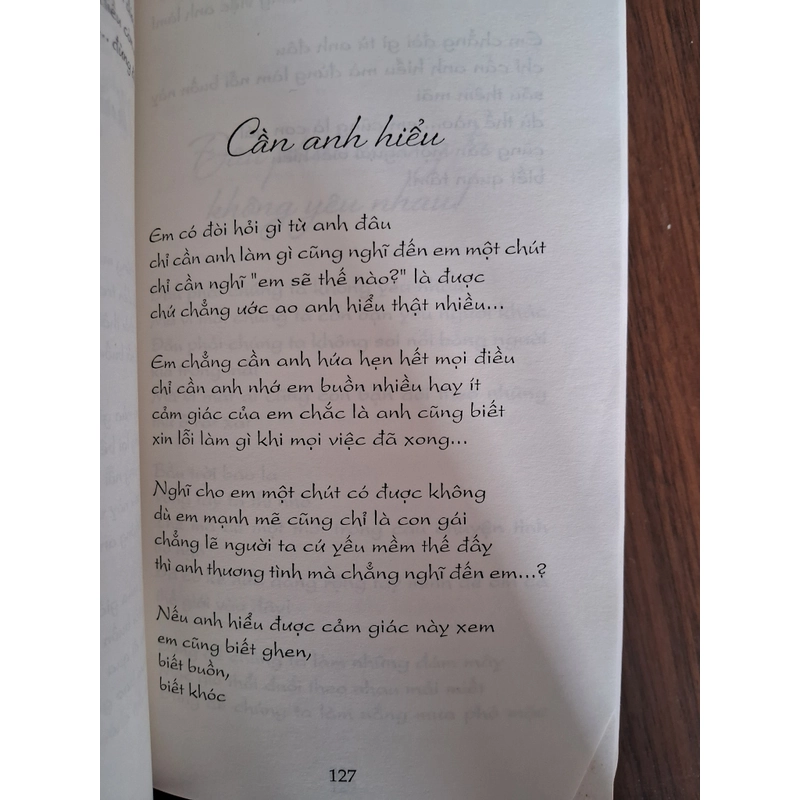 Cần anh hiểu
Em có đòi hỏi gì từ anh đâu
chỉ cần anh làm gì cũng nghĩ đến em một chút
chỉ cần nghĩ "em sẽ thế nào?" là được
chứ chẳng ước ao anh hiểu thật nhiều...
Em chẳng cần anh hứa hẹn hết mọi điều
chỉ cần anh nhớ em buồn nhiều hay ít
cảm giác của em chắc là anh cũng biết
xin lỗi làm gì khi mọi việc đã xong...
Nghĩ cho em một chút có được không
dù em mạnh mẽ cũng chỉ là con gái
chẳng lẽ người ta cứ yếu mềm thế đấy
thì anh thương tình mà chẳng nghĩ đến em...?
Nếu anh hiểu được cảm giác này xem
em cũng biết ghen,
biết buồn,
biết khóc
127